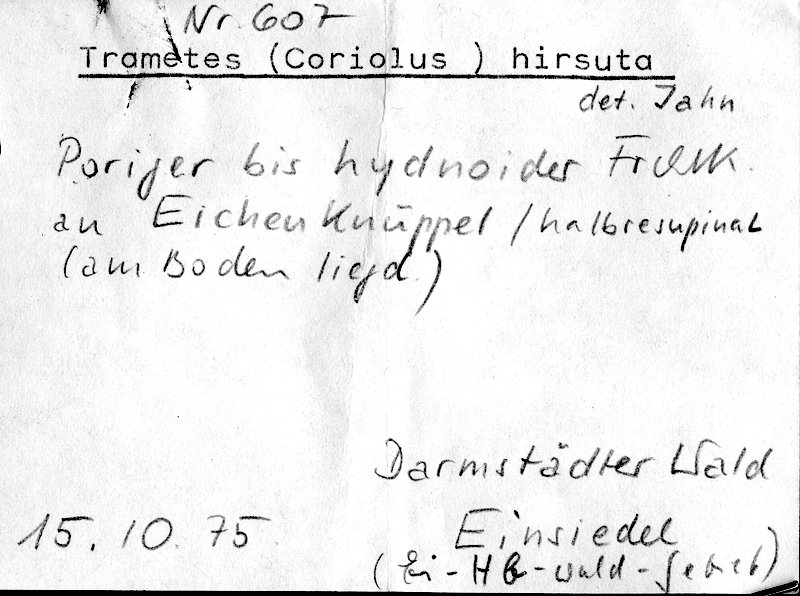 Nr. 607
Trametes (Coriolus ) hirsuta
det. Jahn
Poriger bis hydnoider FrKK.
an Eichenknüppel / halbresupinat
(am Boden liegd.)
Darmstädter Wald
15. 10. 75 Einsiedel
(Ei-HB-wald-Gebiet)